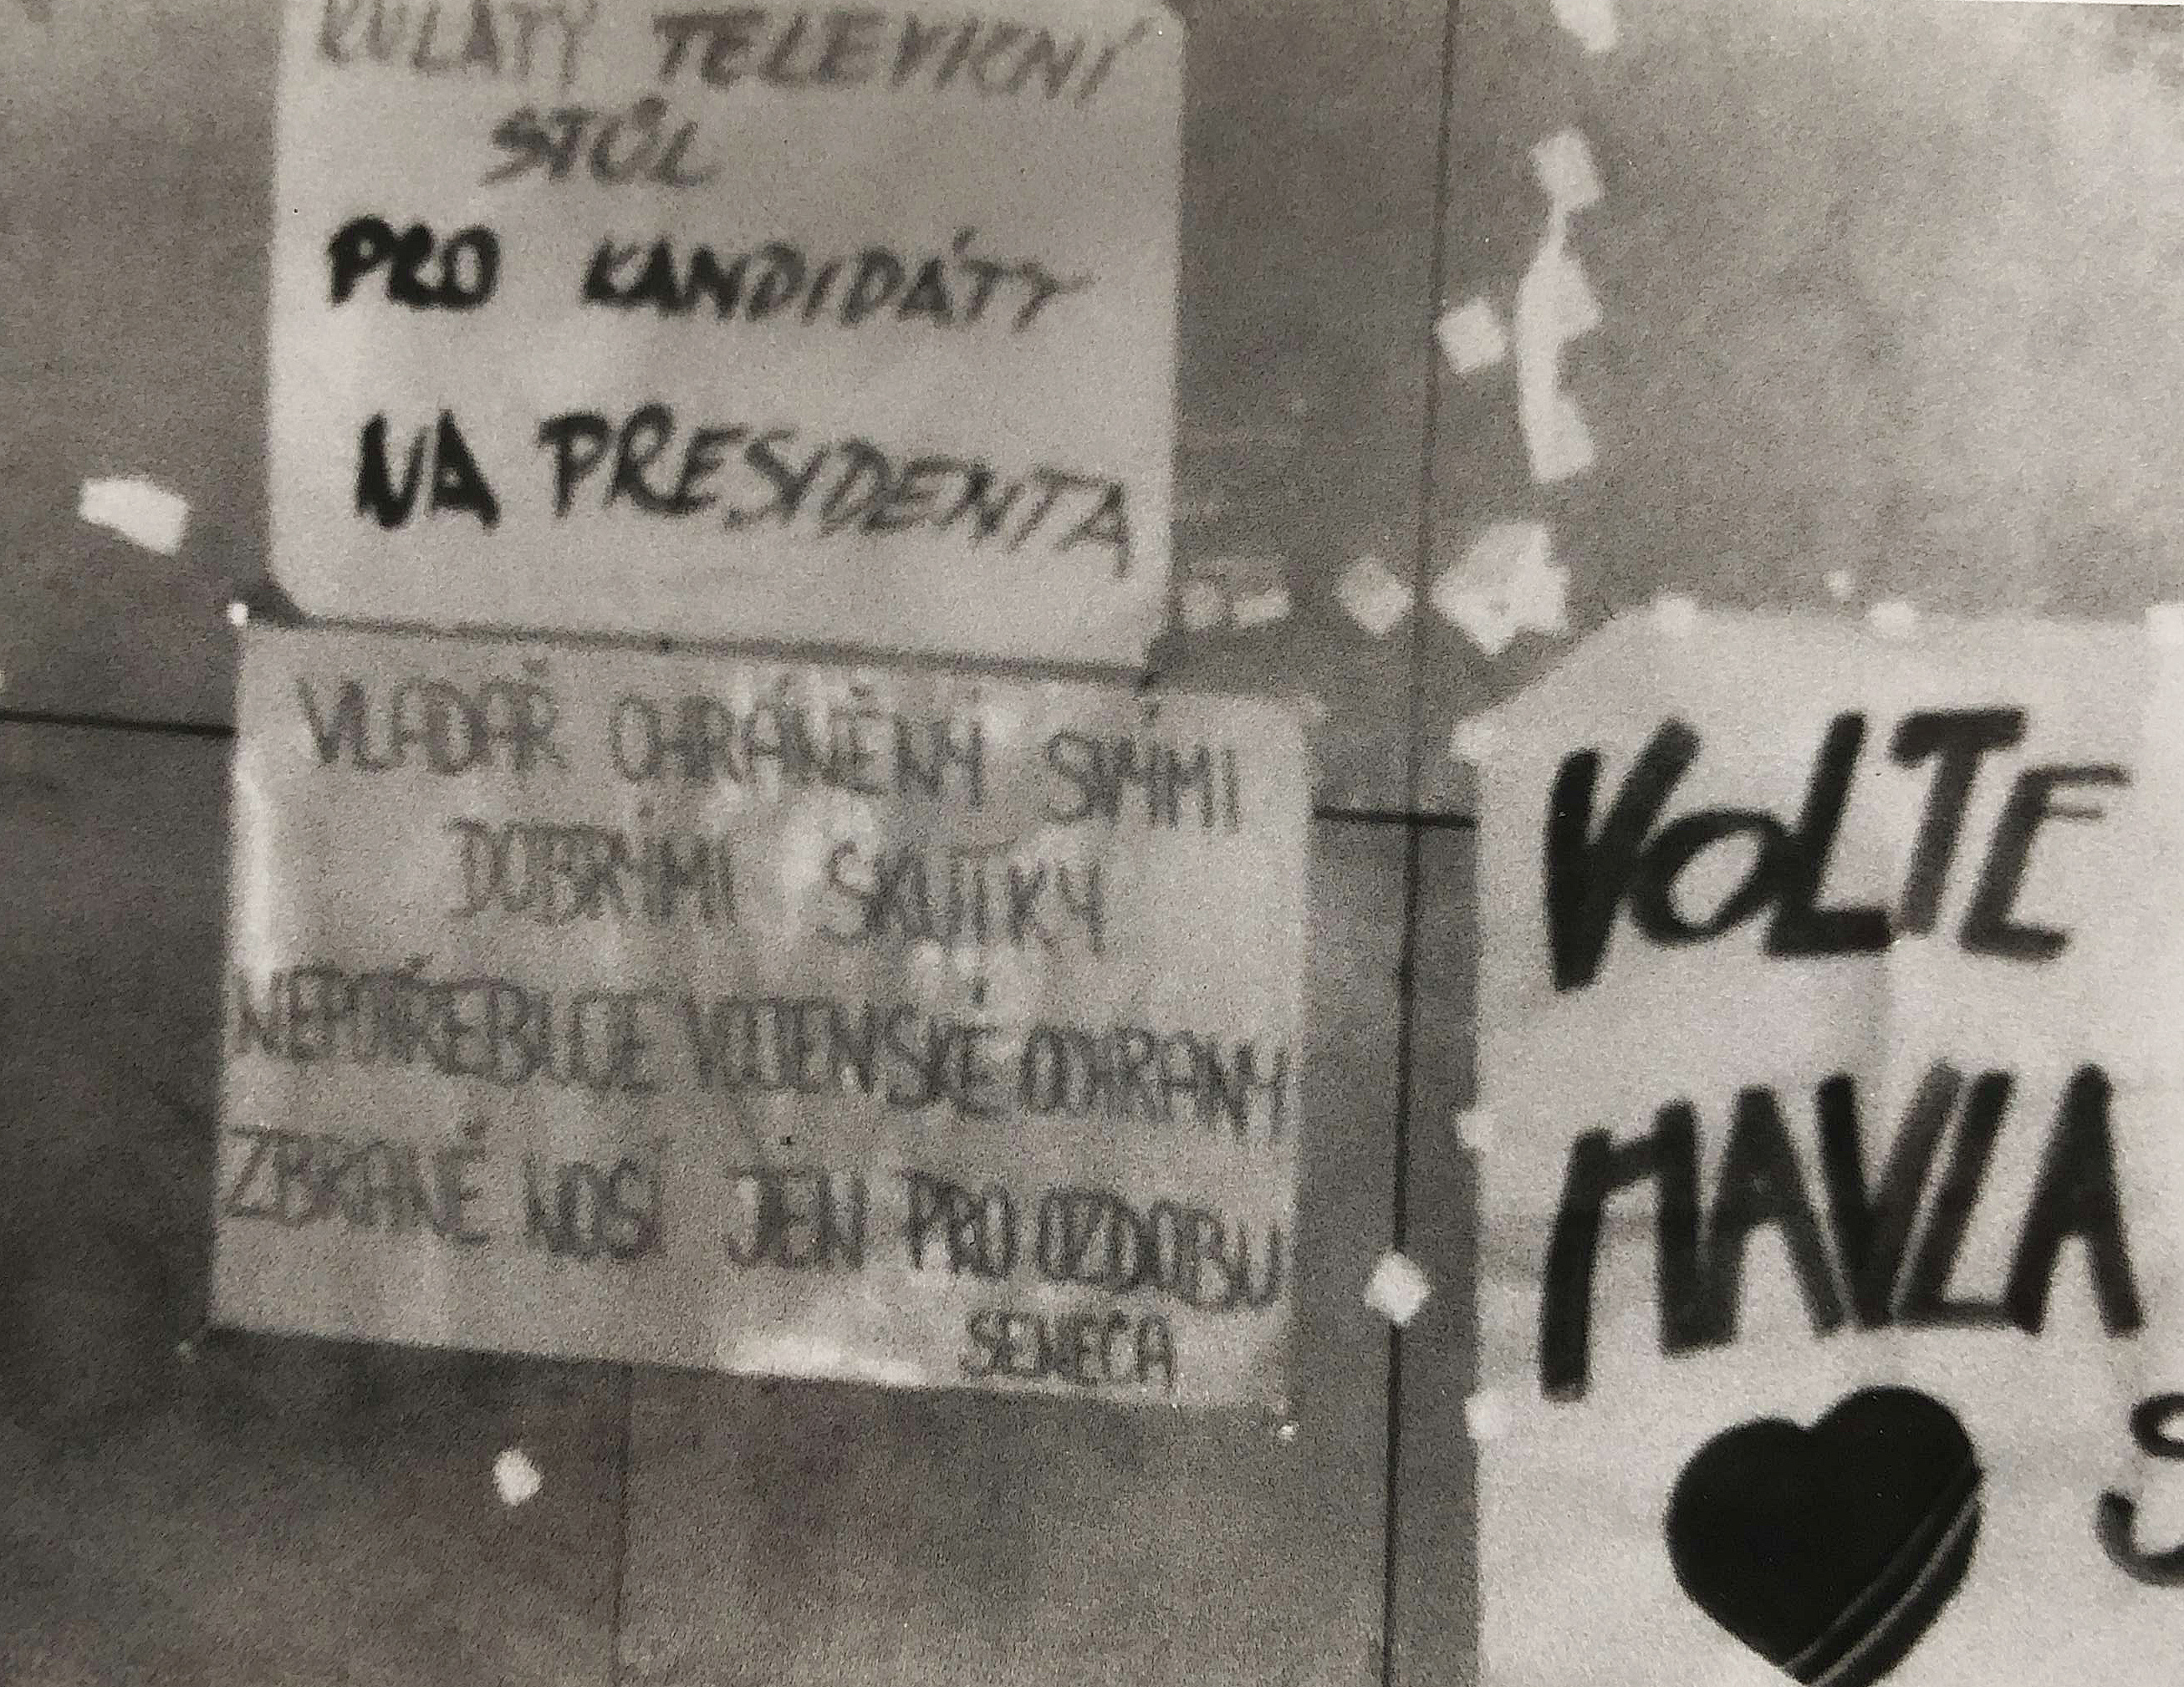 KULATÝ TELEVIZNÍ
STŮL
PRO KANDIDÁTY
NA PRESIDENTA
VLADAŘ CHRÁNĚNÝ SVÝMI
DOBRÝMI SKUTKY
NEPOTŘEBUJE VOJENSKÉ OCHRANY
ZBRANĚ NOSÍ JEN PRO OZDOBU
SENECA
VOLTE
MAVLA